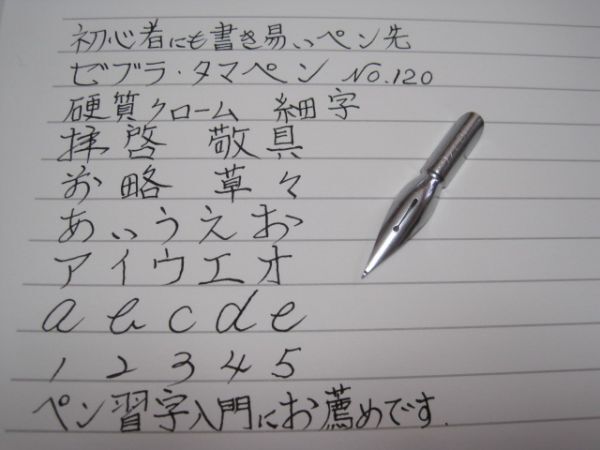 初心者にも書き易いペン先
ゼブラ・タマペン No.120
硬質クローム 細字
拝啓 敬具
前略 草々
あいうえお
アイウエオ
a b c d e
1 2 3 4 5
ペン習字入門にお薦めです.